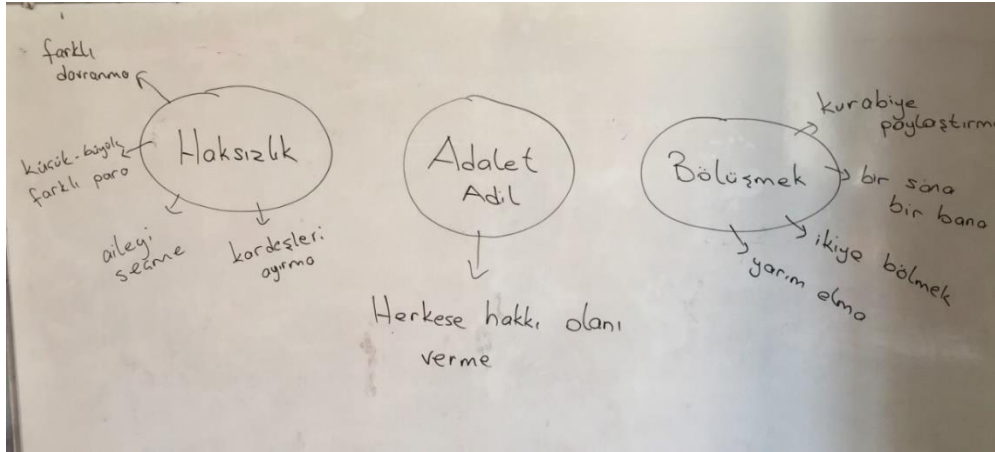 farklı
davranma
Haksızlık
küçük-büyük
farklı para
aileyi
seçme
kardeşleri
ayırma
Adalet
Adil
Herkese hakkı olanı
verme
Bölüşmek
kurabiye
paylaştırma
bir sana
bir bana
ikiye bölmek
yarım elma